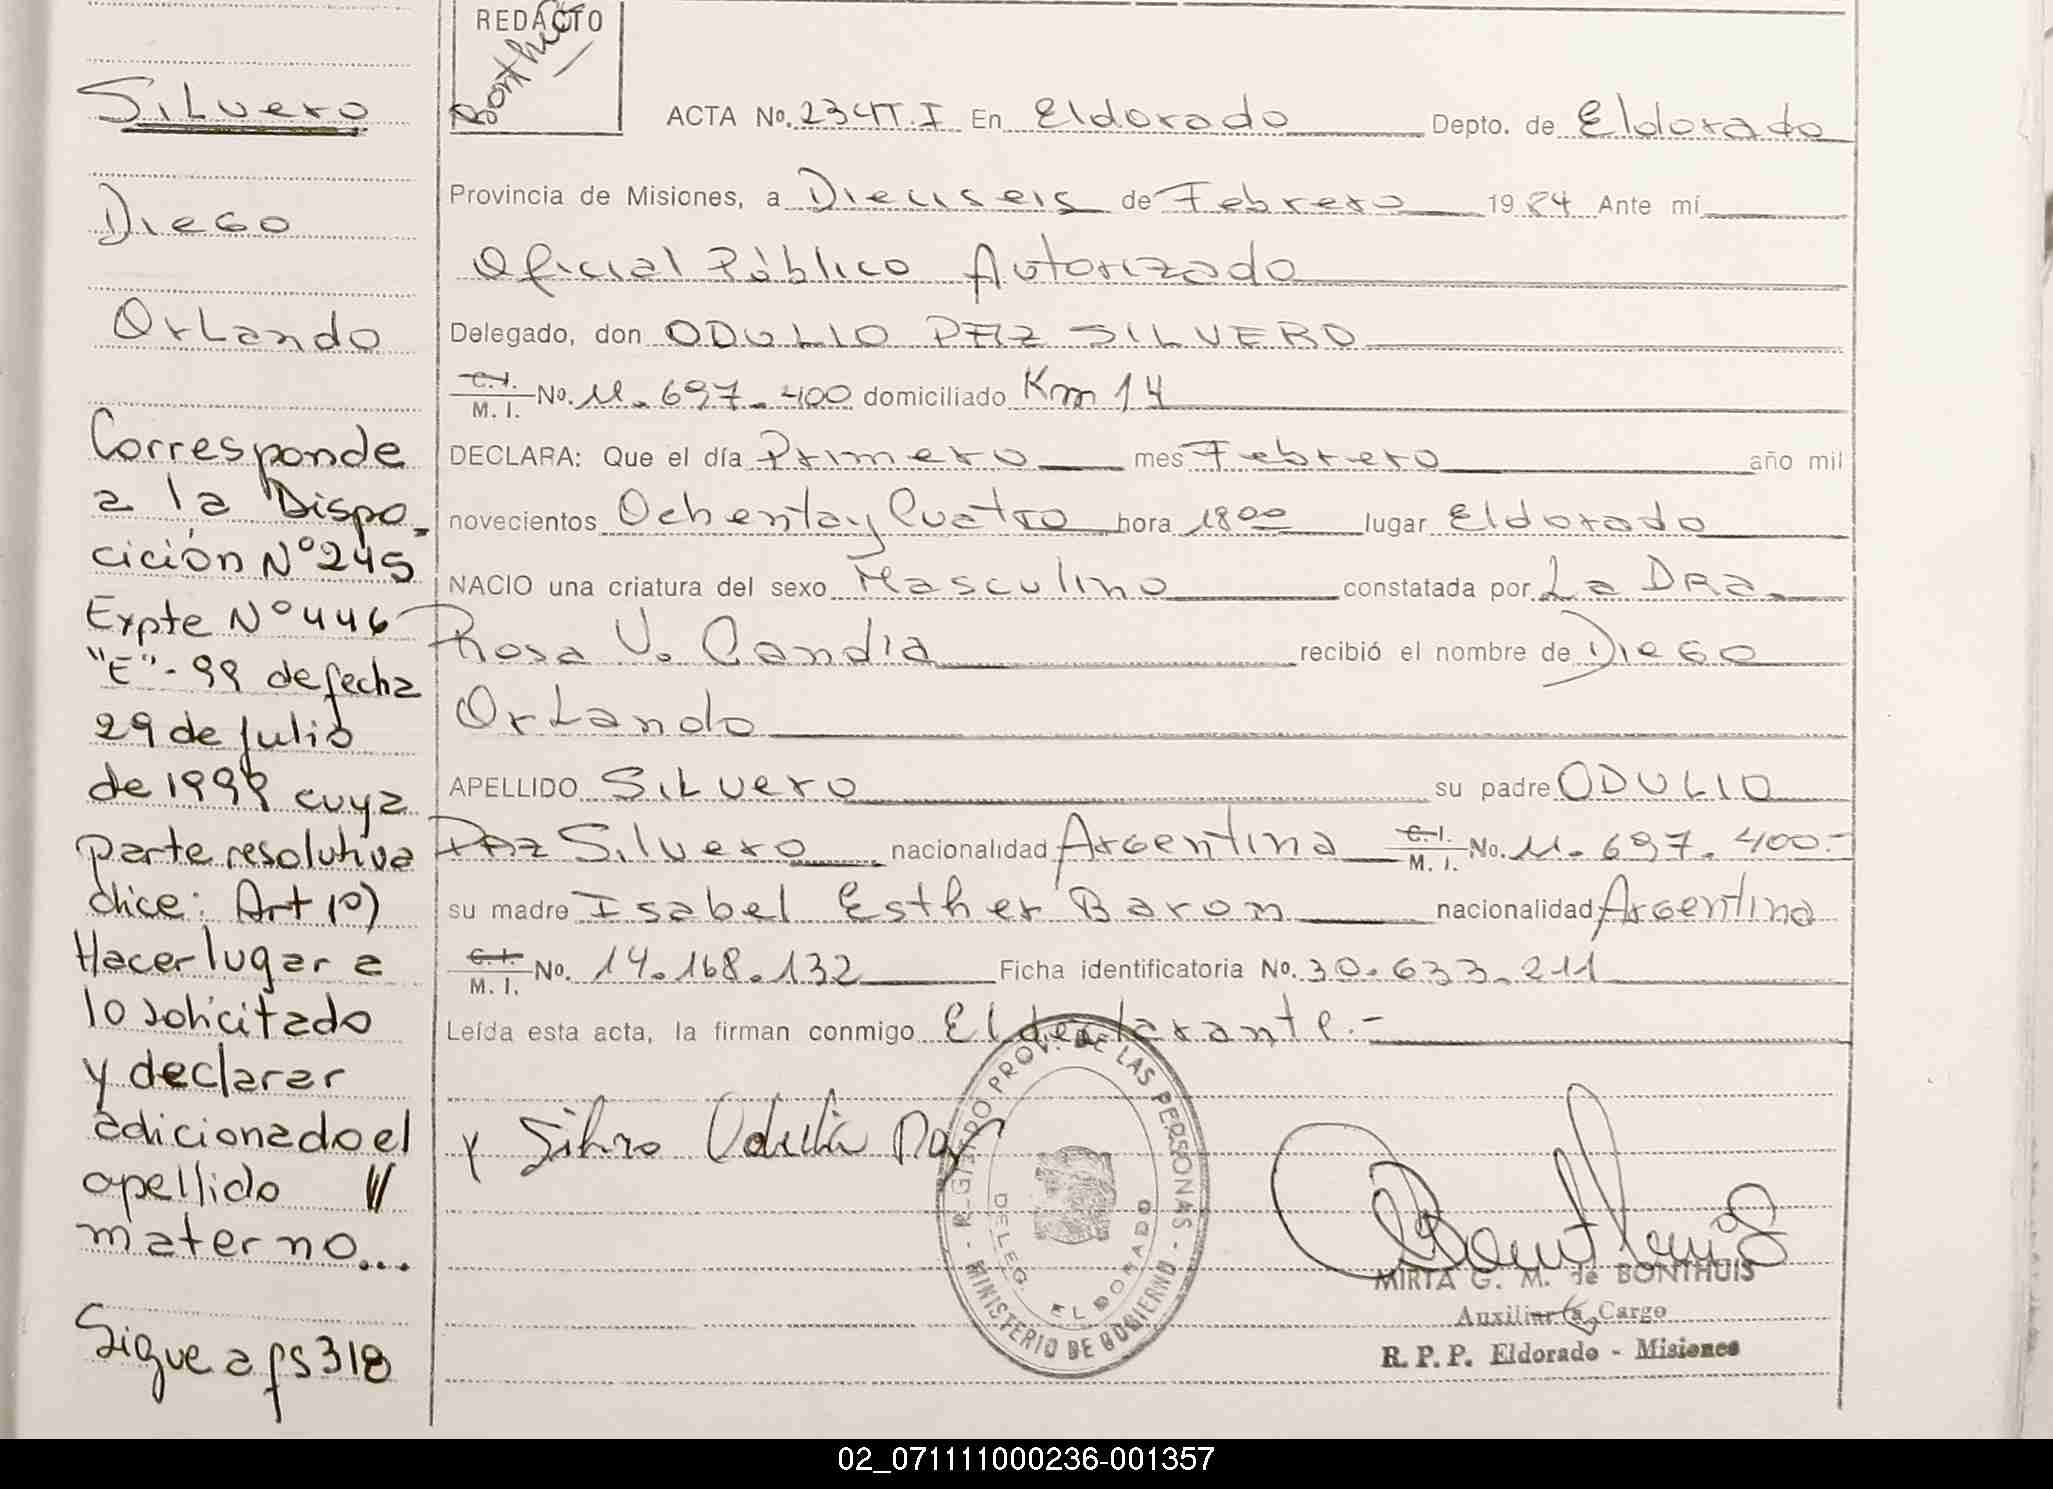 REDACTO
Bonthuis
Silvero
ACTA No. 234 T. I En Eldorado Depto. de Eldorado
Diego
Provincia de Misiones, a Dieciseis de Febrero 1984 Ante mí
Oficial Público Autorizado
Orlando
Delegado, don ODULIO PAZ SILVERO
C.I.
M. I. No. 11.697.400 domiciliado Km 14
DECLARA: Que el día Primero mes Febrero año mil
novecientos Ochenta y Cuatro hora 18 00 lugar Eldorado
NACIO una criatura del sexo Masculino constatada por La DRa.
Rosa V. Candia recibió el nombre de Diego
Orlando
APELLIDO Silvero su padre ODULIO
PAZ Silvero nacionalidad Argentina C.I. M. I. No. 11.697.400.-
su madre Isabel Esther Baron nacionalidad Argentina
C.I.
M. I. No. 14.168.132 Ficha identificatoria No. 30.633.211
Leída esta acta, la firman conmigo El declarante.-
Corresponde
a la Dispo-
cición N° 245
Expte N° 446
"E"-99 de fecha
29 de Julio
de 1999 cuya
parte resolutiva
dice: Art 1º)
Hacer lugar a
lo solicitado
y declarar
adicionado el
apellido //
materno...
Sigue a fs 318
REGISTRO PROV. DE LAS PERSONAS - MINISTERIO DE GOBIERNO -
DELEG. ELDORADO
MIRTA G. M. de BONTHUIS
Auxiliar a Cargo
R. P. P. Eldorado - Misiones
02_071111000236-001357